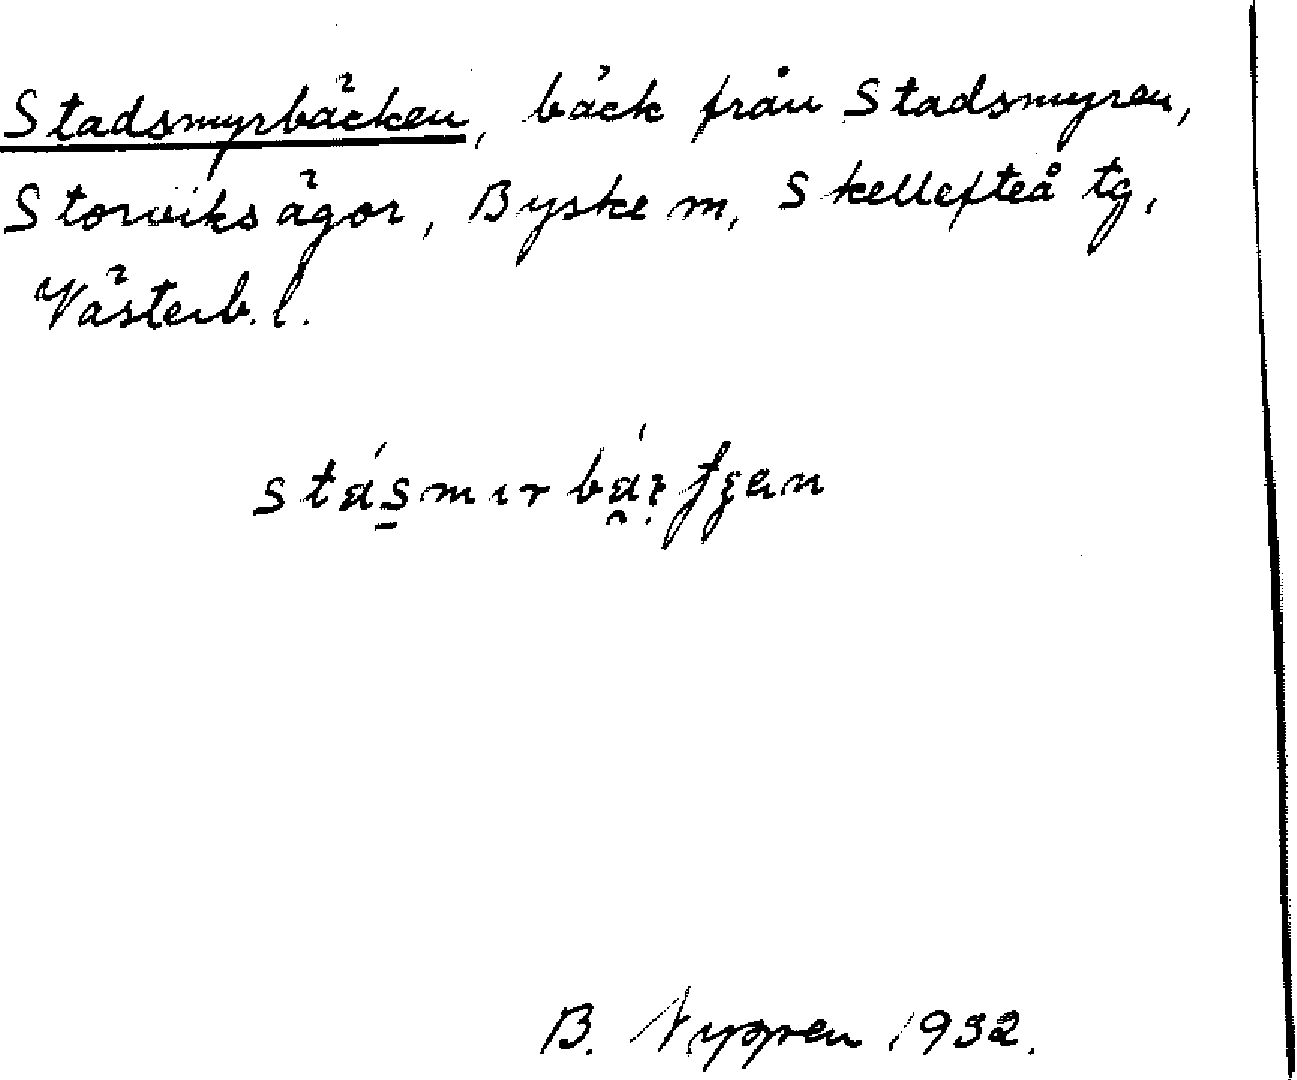 Stadsmyrbäcken, bäck från Stadsmyren,
Storviks ägor, Byske m, Skellefteå tg,
Västerb. l.
B. Nyppren 1932.